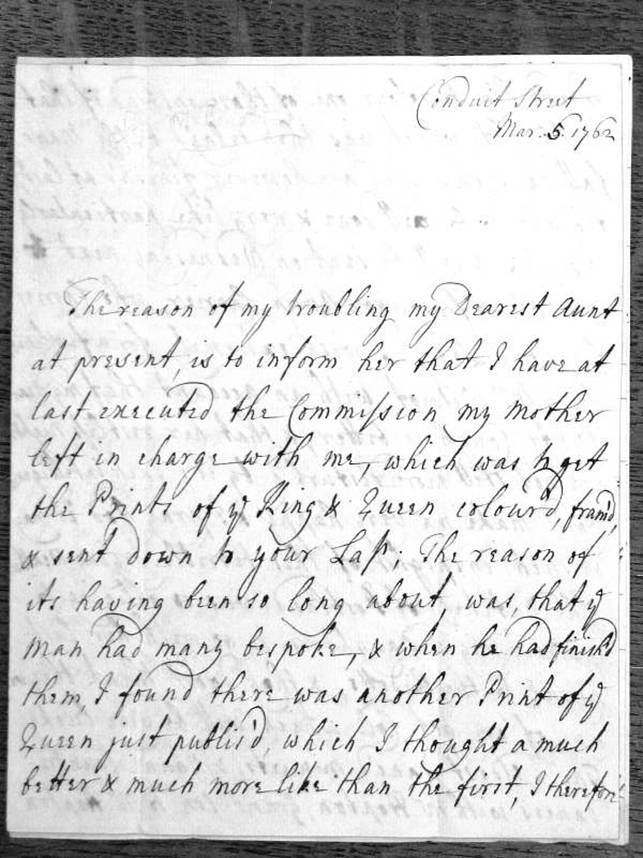 Conduit Street
Mar. 5. 1762
The reason of my troubling my Dearest Aunt
at present, is to inform her that I have at
last executed the Commission my Mother
left in charge with me, which was to get
the Prints of ye King & Queen colour'd, fram'd,
& sent down to your Lasp: The reason of
its having been so long about, was, that ye
Man had many bespoke, & when he had finish'd
them, I found there was another Print of ye
Queen just publis'd, which I thought a much
better & much more like than the first, I therefore